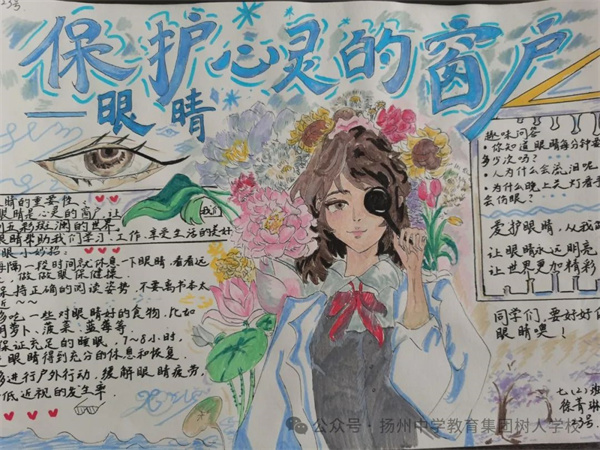 23号.
保护心灵的窗户
—眼睛
睛的重要性:
眼睛是心灵的窗户,让
们
五彩斑斓的世界
眼睛帮助我们学习、工作,享受生活的美好
眼小妙招:
每隔一段时间就休息一下眼睛,看看远
,做做眼保健操
保持正确的阅读姿势,不要离书本太
近~~
多吃一些对眼睛好的食物,比如
胡萝卜、菠菜、蓝莓等
保证充足的睡眠,7~8小时,
眼睛得到充分的休息和恢复
多进行户外行动,缓解眼睛疲劳,
低近视的发生率
趣味问答
·你知道眼睛每分钟要
多少次吗?
·人为什么会流泪呢
·为什么晚上关灯看手
会伤眼?
爱护眼睛,从我
让眼睛永远明亮
让世界更加精彩
同学们,要好好
眼睛噢!
七(2)班
徐菁琳
23号.
公众号·扬州中学教育集团树人学校